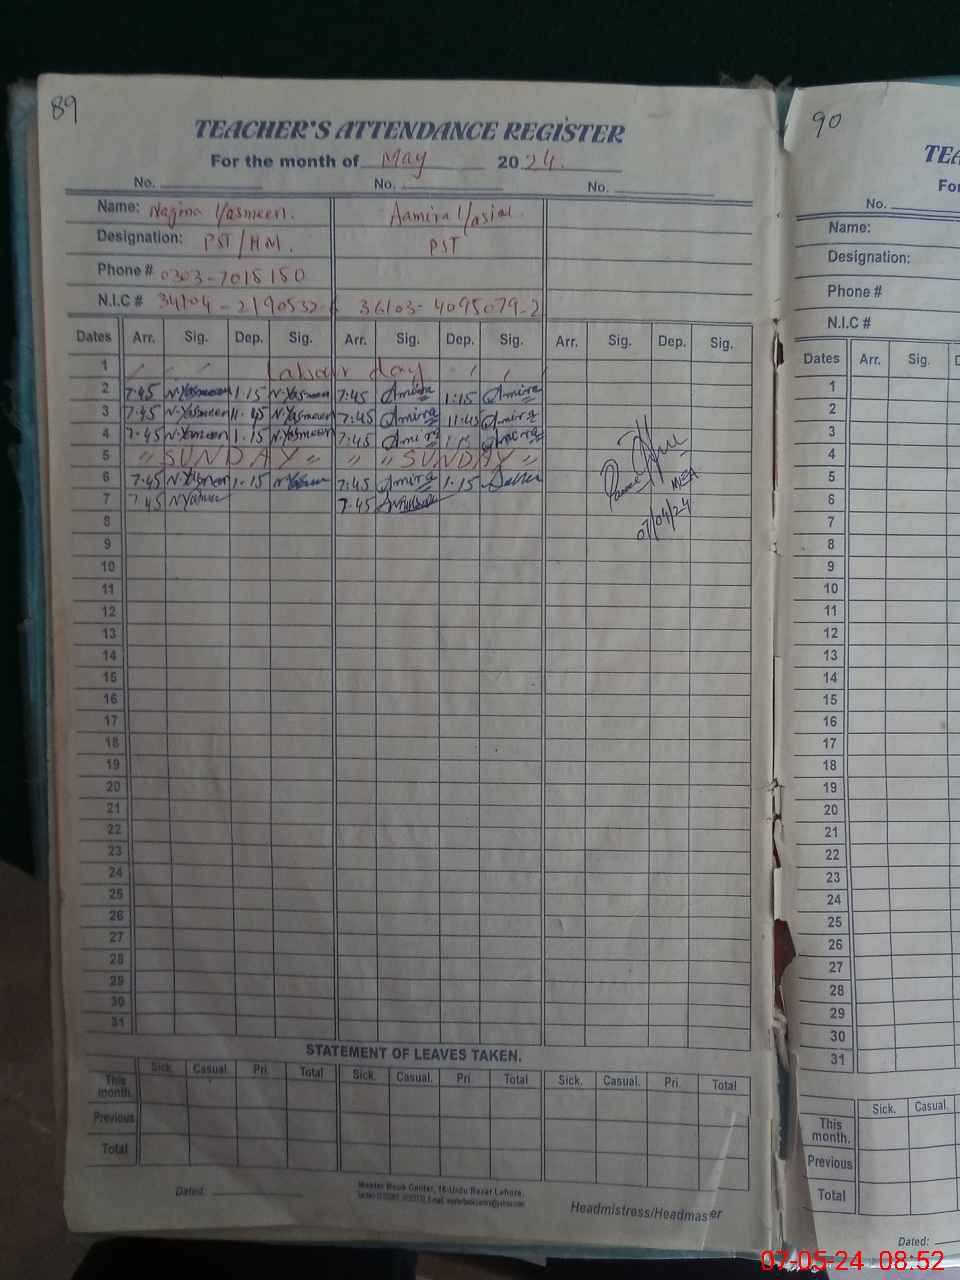 89
TEACHER'S ATTENDANCE REGISTER
For the month of May 2024.
No. No. No.
Name: Nagina Yasmeen. Aamira Yasial
Designation: PST/HM. PST
Phone # 0303-7018150
N.I.C # 34104-2190532- 36103-4095079-2
Dates Arr. Sig. Dep. Sig. Arr. Sig. Dep. Sig. Arr. Sig. Dep. Sig.
1 Labour day
2 7.45 N.Yasmeen 1.15 N.Yasmeen 7.45 Amira 1.15 Amira
3 7.45 N.Yasmeen 11.45 N.Yasmeen 7.45 Amira 11.45 Amira
4 7.45 N.Yasmeen 1.15 N.Yasmeen 7.45 Amira 1.15 Amira
5 " SUNDAY " " " SUNDAY "
6 7.45 N.Yasmeen 1.15 7.45 Amira 1.15
7 7.45 7.45
MEA
07/04/24
8
9
10
11
12
13
14
15
16
17
18
19
20
21
22
23
24
25
26
27
28
29
30
31
STATEMENT OF LEAVES TAKEN.
Sick. Casual. Pri. Total Sick. Casual. Pri. Total Sick. Casual. Pri. Total
This month.
Previous
Total
Dated:
Master Book Center, 16-Urdu Bazar Lahore.
Headmistress/Headmaster
90
No.
Name:
Designation:
Phone #
N.I.C #
Dates Arr. Sig.
1
2
3
4
5
6
7
8
9
10
11
12
13
14
15
16
17
18
19
20
21
22
23
24
25
26
27
28
29
30
31
Sick. Casual.
This month.
Previous
Total
Dated:
07-05-24 08:52